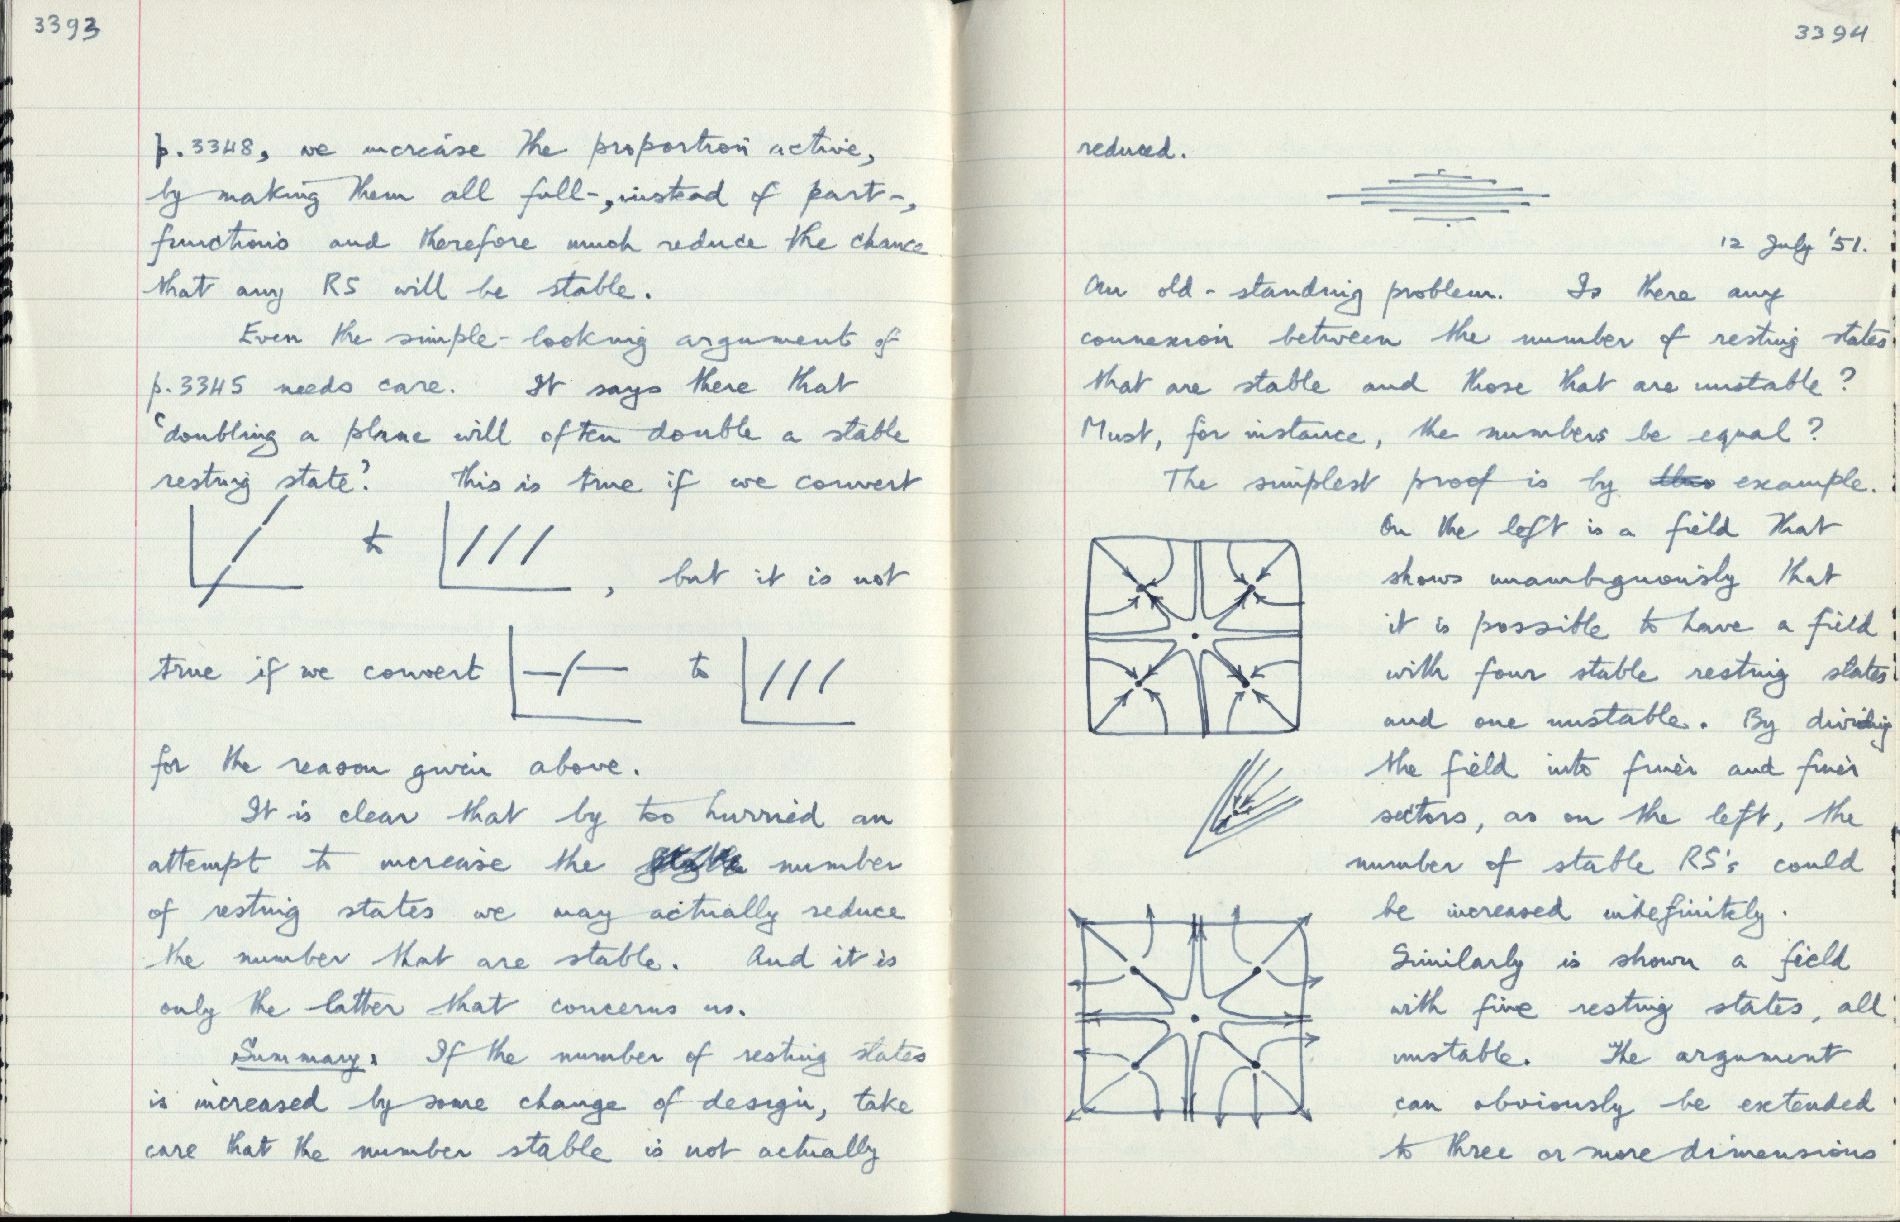 3393
p. 3348, we increase the proportion active,
by making them all full-, instead of part-,
functions and therefore much reduce the chance
that any RS will be stable.
Even the simple-looking argument of
p. 3345 needs care. It says there that
'doubling a plane will often double a stable
resting state'. This is true if we convert
to , but it is not
true if we convert to
for the reason given above.
It is clear that by too hurried an
attempt to increase the number
of resting states we may actually reduce
the number that are stable. And it is
only the latter that concerns us.
Summary: If the number of resting states
is increased by some change of design, take
care that the number stable is not actually
3394
reduced.
12 July '51.
An old-standing problem. Is there any
connexion between the number of resting states
that are stable and those that are unstable?
Must, for instance, the numbers be equal?
The simplest proof is by example.
On the left is a field that
shows unambiguously that
it is possible to have a field
with four stable resting states
and one unstable. By dividing
the field into finer and finer
sectors, as on the left, the
number of stable RS's could
be increased indefinitely.
Similarly is shown a field
with five resting states, all
unstable. The argument
can obviously be extended
to three or more dimensions